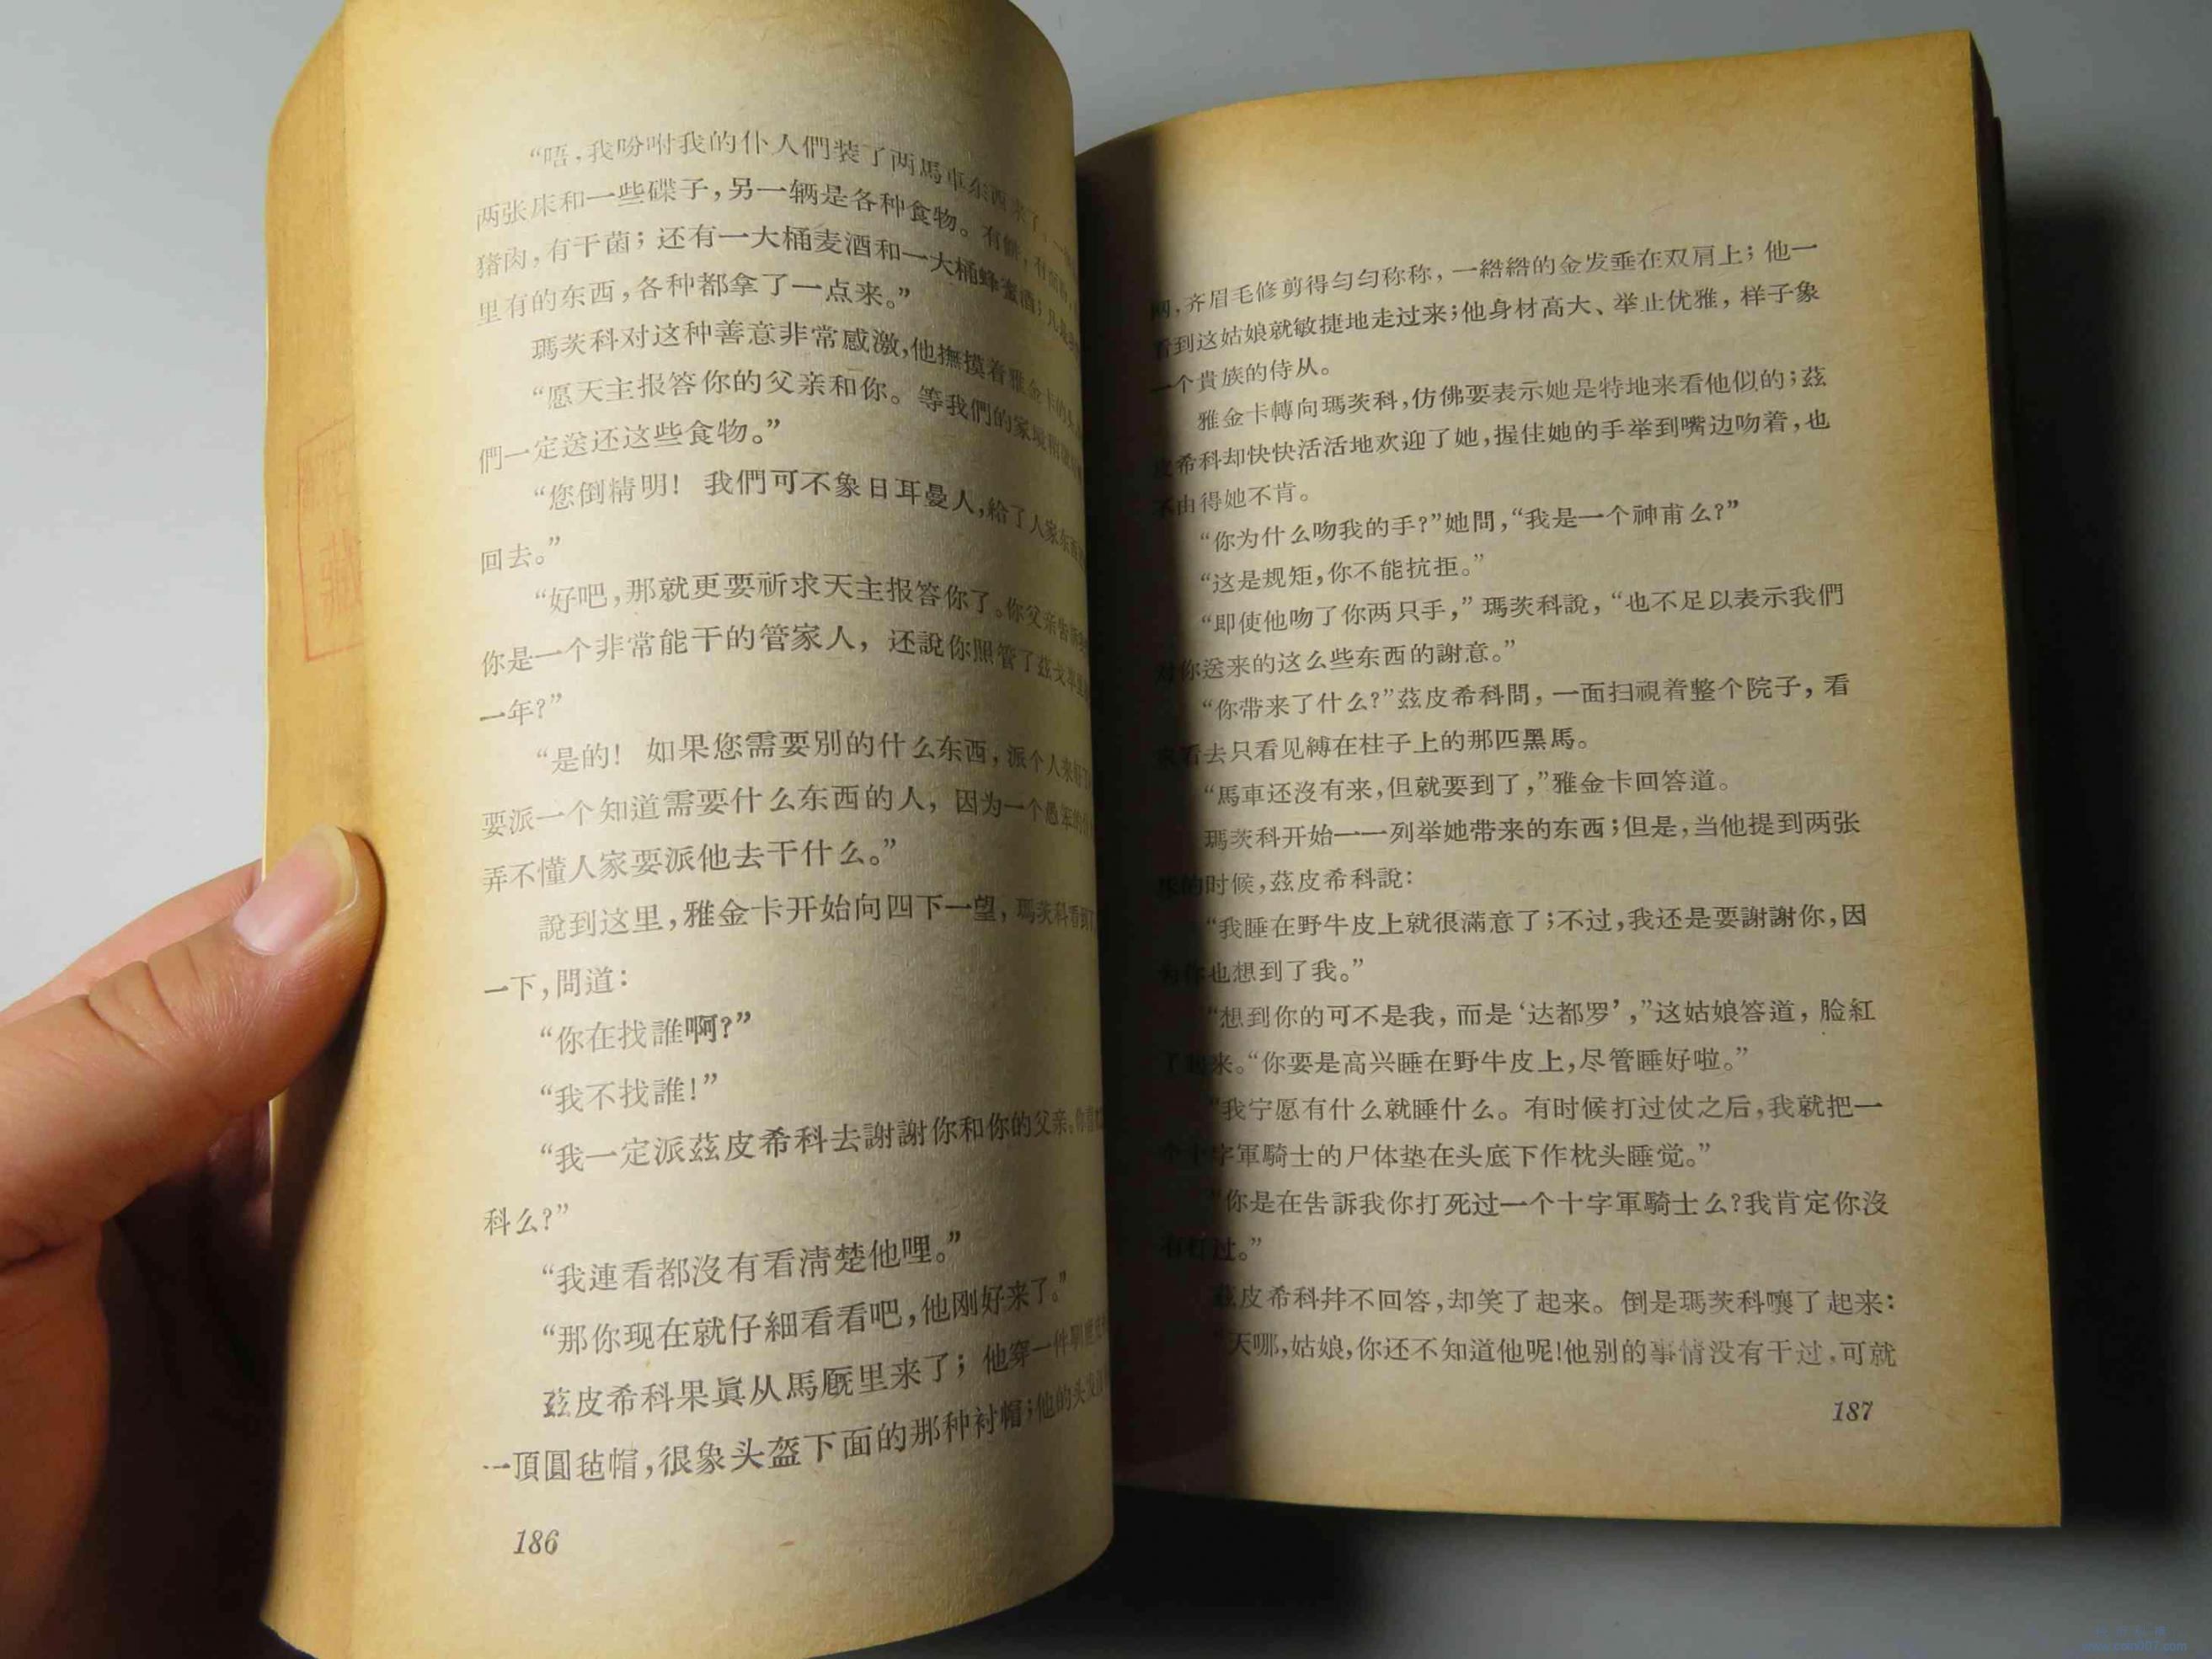 “唔，我吩咐我的仆人們装了两馬車东西来了，一
两张床和一些碟子，另一辆是各种食物。有餅，有
猪肉，有干菌；还有一大桶麦酒和一大桶蜂蜜酒；凡是
里有的东西，各种都拿了一点来。”
瑪茨科对这种善意非常感激，他撫摸着雅金卡的头
“愿天主报答你的父亲和你。等我們的家境
們一定送还这些食物。”
“您倒精明！我們可不象日耳曼人，給了人家东西
回去。”
“好吧，那就更要祈求天主报答你了。你父亲告訴
你是一个非常能干的管家人，还說你照管了茲戈萃里
一年？”
“是的！如果您需要别的什么东西，派个人来好了
要派一个知道需要什么东西的人，因为一个愚笨的
弄不懂人家要派他去干什么。”
說到这里，雅金卡开始向四下一望，瑪茨科看到了
一下，問道：
“你在找誰啊？”
“我不找誰！”
“我一定派茲皮希科去謝謝你和你的父亲。你喜欢
科么？”
“我連看都沒有看清楚他哩。”
“那你现在就仔細看看吧，他刚好来了。”
茲皮希科果眞从馬厩里来了；他穿一件
一頂圓毡帽，很象头盔下面的那种衬帽；他的头发
186
，齐眉毛修剪得匀匀称称，一綹綹的金发垂在双肩上；他一
看到这姑娘就敏捷地走过来；他身材高大、举止优雅，样子象
一个貴族的侍从。
雅金卡轉向瑪茨科，仿佛要表示她是特地来看他似的；茲
皮希科却快快活活地欢迎了她，握住她的手举到嘴边吻着，也
不由得她不肯。
“你为什么吻我的手？”她問，“我是一个神甫么？”
“这是规矩，你不能抗拒。”
“即使他吻了你两只手，”瑪茨科說，“也不足以表示我們
对你送来的这么些东西的謝意。”
“你带来了什么？”茲皮希科問，一面扫視着整个院子，看
来看去只看见縛在柱子上的那匹黑馬。
“馬車还沒有来，但就要到了，”雅金卡回答道。
瑪茨科开始一一列举她带来的东西；但是，当他提到两张
床的时候，茲皮希科說：
“我睡在野牛皮上就很滿意了；不过，我还是要謝謝你，因
为你也想到了我。”
“想到你的可不是我，而是‘达都罗’，”这姑娘答道，脸紅
了起来。“你要是高兴睡在野牛皮上，尽管睡好啦。”
“我宁愿有什么就睡什么。有时候打过仗之后，我就把一
个十字軍騎士的尸体垫在头底下作枕头睡觉。”
“你是在告訴我你打死过一个十字軍騎士么？我肯定你沒
有打过。”
茲皮希科幷不回答，却笑了起来。倒是瑪茨科嚷了起来：
“天哪，姑娘，你还不知道他呢！他别的事情没有干过，可就
187
www.coin007.com